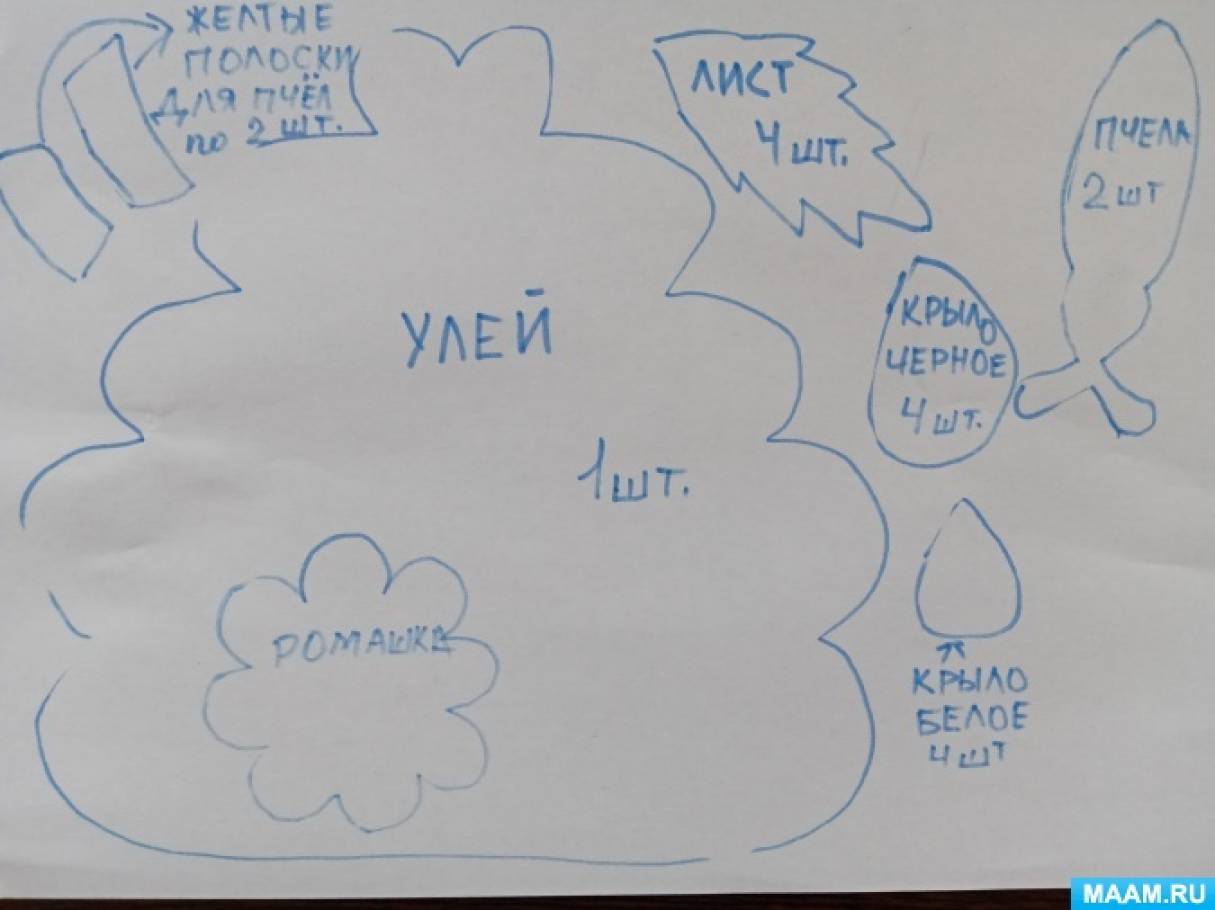 ЖЕЛТЫЕ
ПОЛОСКИ
ДЛЯ ПЧЁЛ
по 2 шт.
ЛИСТ
4 шт.
ПЧЕЛА
2 шт
КРЫЛО
ЧЕРНОЕ
4 шт.
УЛЕЙ
1 шт.
РОМАШКА
КРЫЛО
БЕЛОЕ
4 шт
MAAM.RU